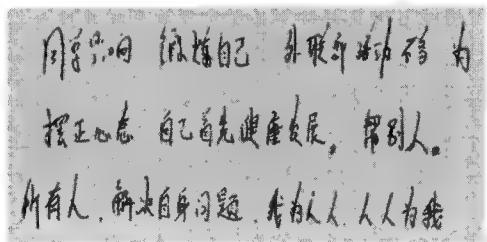 同学影响 锻炼自己 外联部活动不錯 为
摆正心态 自己首先健康发展。帮别人。
所有人，解决自身问题，我为人人 人人为我